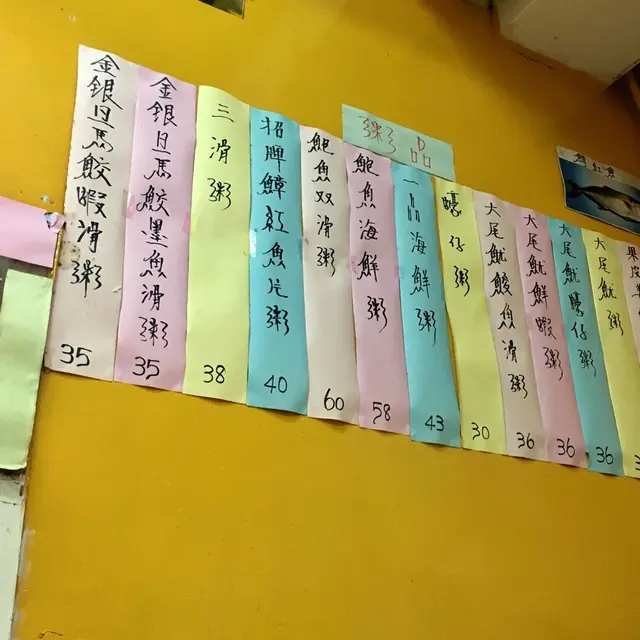 粥品
金銀旦馬鮫蝦滑粥 35
金銀旦馬鮫墨魚滑粥 35
三滑粥 38
招牌鱆紅魚片粥 40
鮑魚双滑粥 60
鮑魚海鮮粥 58
一品海鮮粥 43
蠔仔粥 30
大尾魷鮫魚滑粥 36
大尾魷鮮蝦粥 36
大尾魷蠔仔粥 36
大尾魷粥
果皮
紅魚